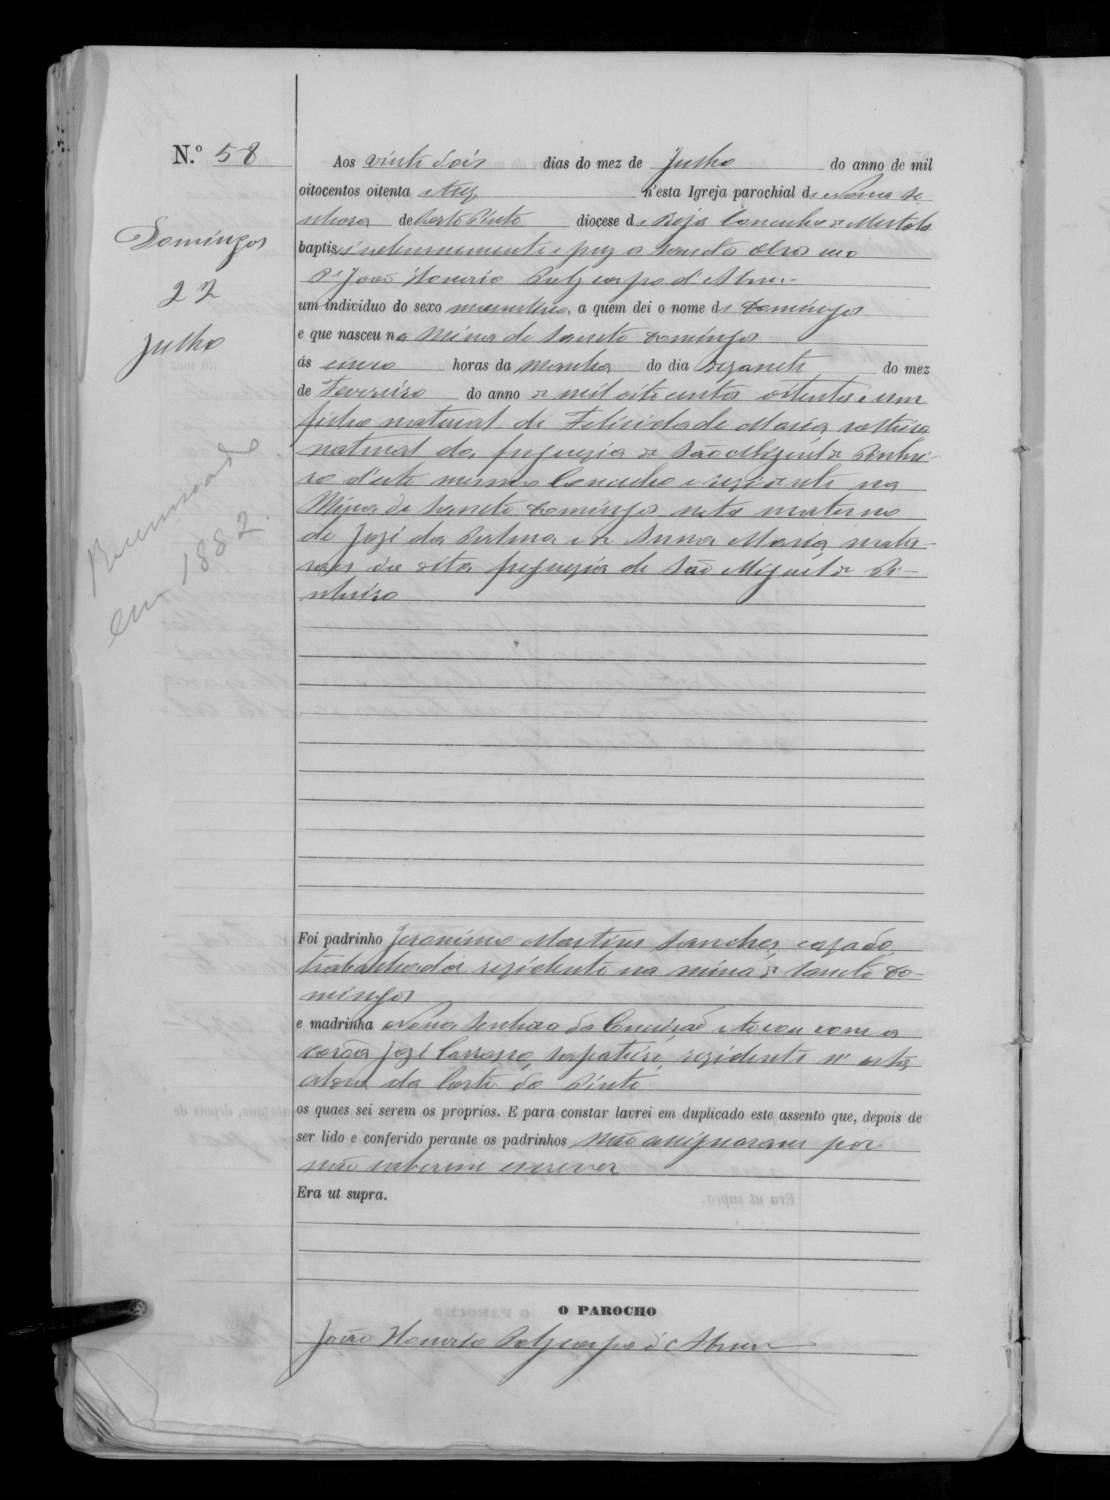 N.º 58
Domingos
22
Julho
em 1882
Aos vinte dois dias do mez de Julho do anno de mil
oitocentos oitenta e tres n'esta Igreja parochial de Nossa Se
nhora de Corte Pinto diocese de Beja Concelho de Mertola
baptisei solemnemente e puz os Sanctos Oleos eu o
P.e João Honorio Policarpo d'Abreu
um individuo do sexo masculino, a quem dei o nome de Domingos
e que nasceu na Mina de Sancto Domingos
ás cinco horas da manhã do dia dezasete do mez
de Fevereiro do anno de mil oitocentos oitenta e um
filho natural de Felicidade Maria solteira
natural da freguezia de São Miguel de Pinhei-
ro d'este mesmo Concelho e rezidente na
Mina de Sancto Domingos neto materno
de Jozé da Palma e de Anna Maria natu-
raes da dita freguezia de São Miguel de Pi-
nheiro
Foi padrinho Jeronimo Martins Sanches, cazado
trabalhador rezidente na mina de Sancto Do-
mingos
e madrinha Nossa Senhora da Conceição e tocou com a
corôa Jozé sapateiro, rezidente n'esta
aldeia da Corte do Pinto
os quaes sei serem os proprios. E para constar lavrei em duplicado este assento que, depois de
ser lido e conferido perante os padrinhos não assignaram por
não saberem escrever
Era ut supra.
O PAROCHO
João Honorio Policarpo d'Abreu